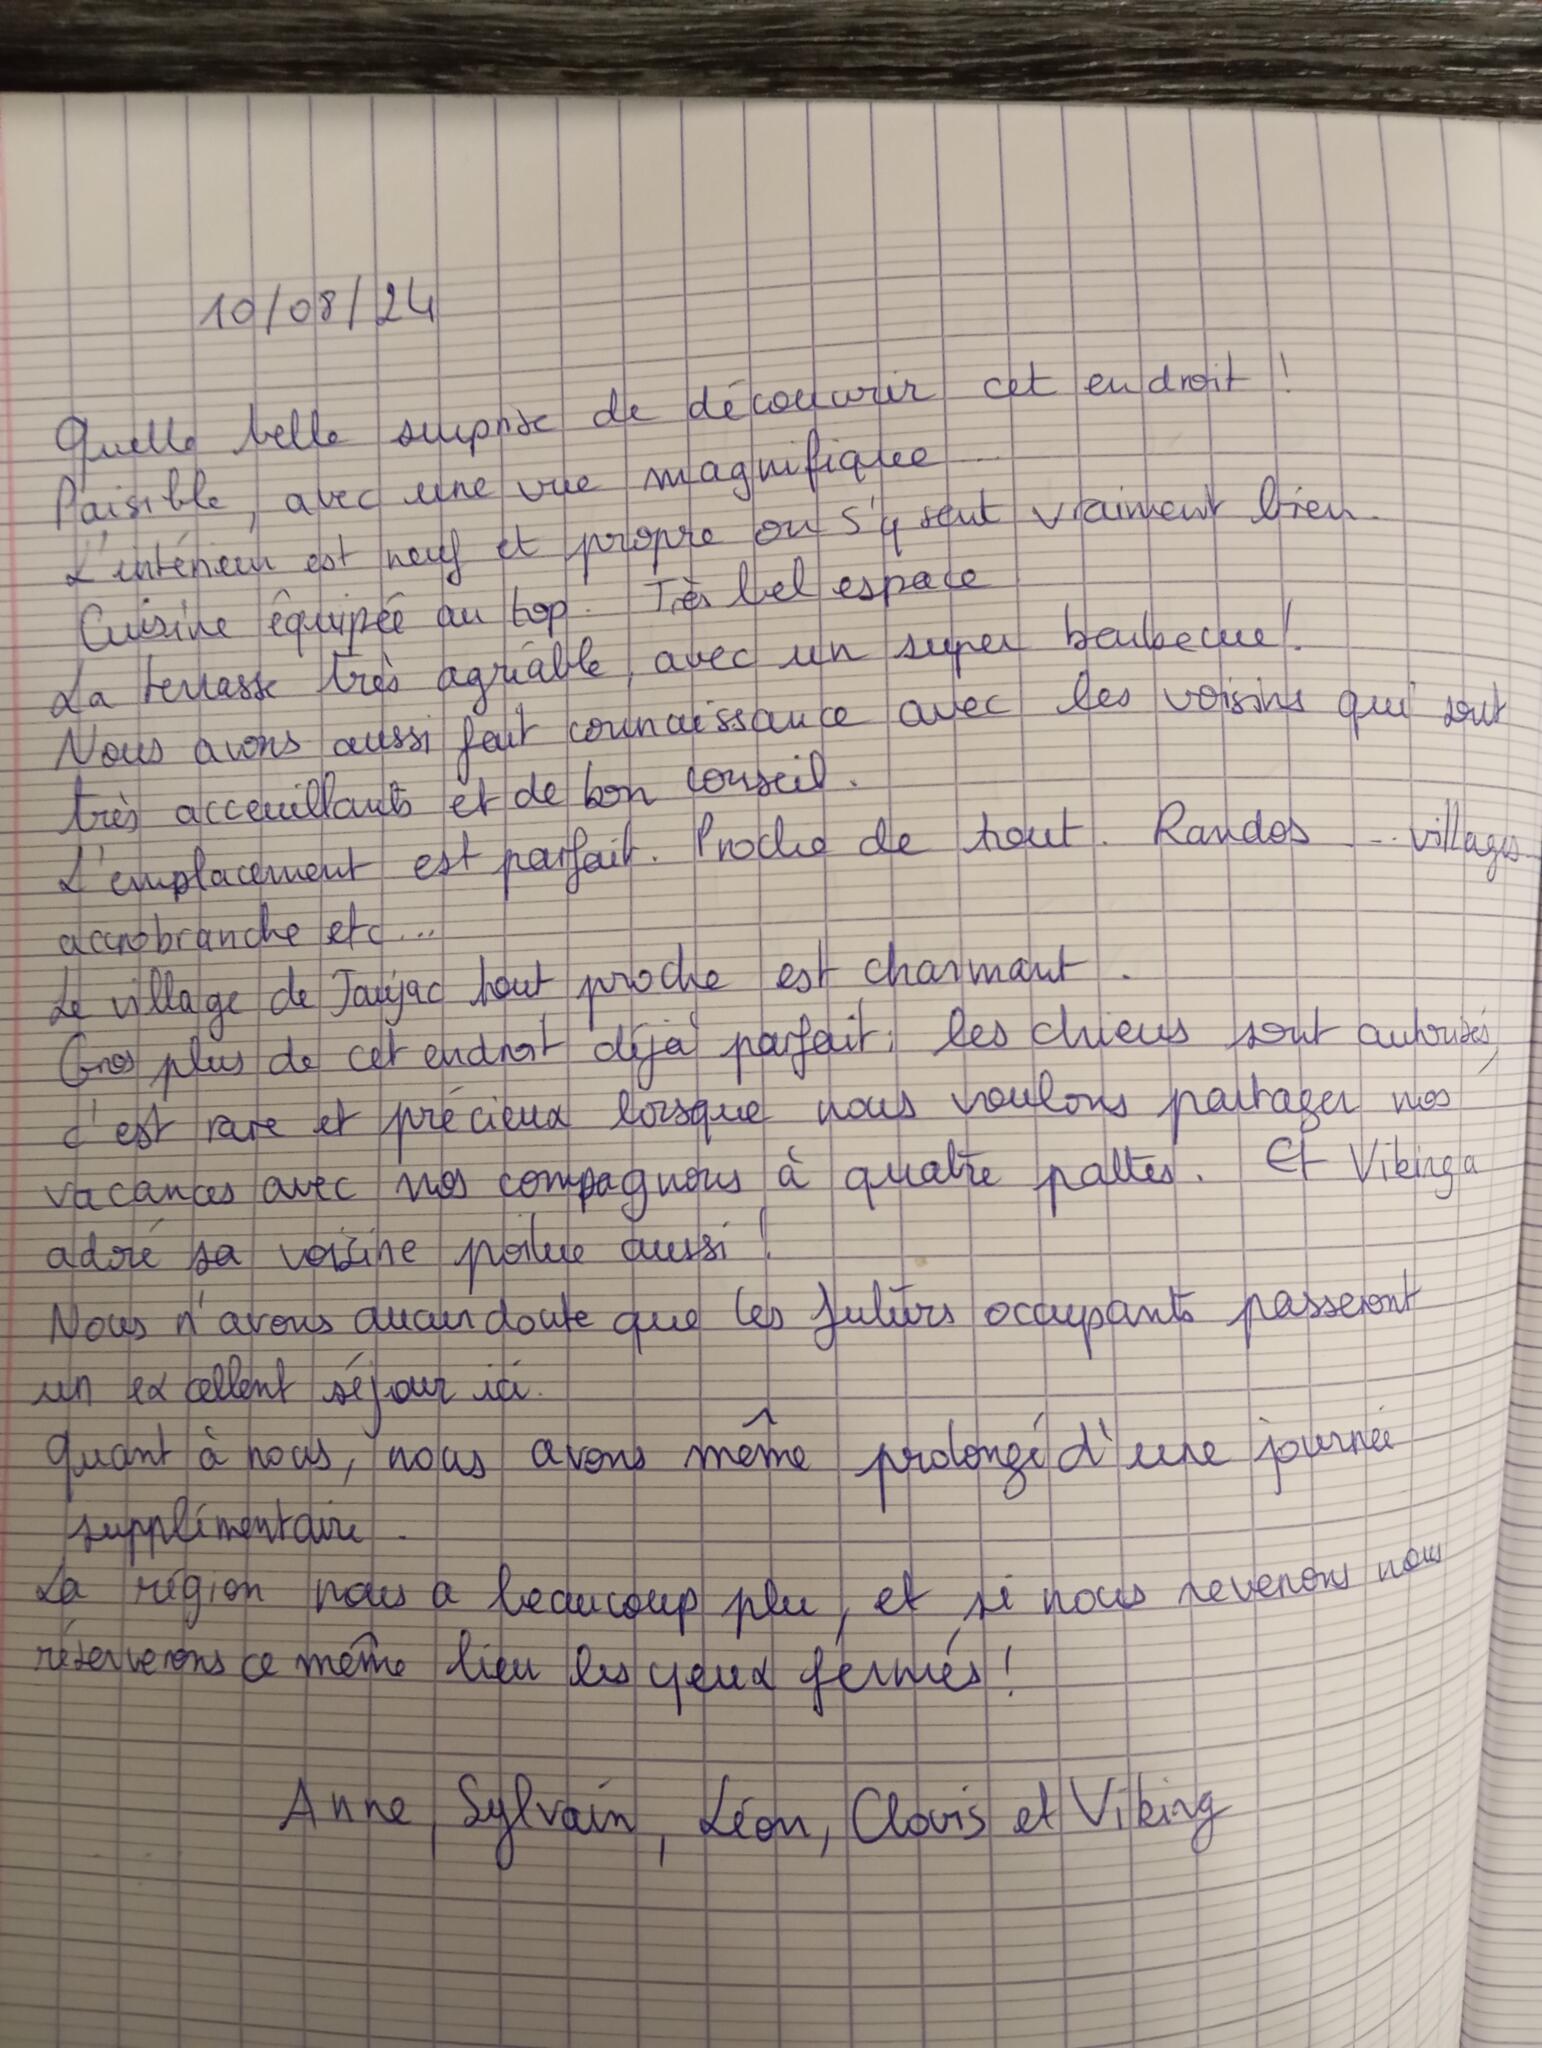 10/08/24
Quelle belle surprise de découvrir cet endroit !
Paisible, avec une vue magnifique
L'intérieur est neuf et propre on s'y sent vraiment bien.
Cuisine équipée au top. Très bel espace
La terrasse très agréable, avec un super barbecue !
Nous avons aussi fait connaissance avec les voisins qui sont
très acceuillants et de bon conseil.
L'emplacement est parfait. Proche de tout. Randos ... villages
accrobranche etc...
Le village de Jaujac tout proche est charmant.
Gros plus de cet endroit déjà parfait ; les chiens sont autorisés,
c'est rare et précieux lorsque nous voulons partager nos
vacances avec nos compagnons à quatre pattes. Et Viking a
adoré sa voisine poilue aussi !
Nous n'avons aucun doute que les futurs occupants passeront
un excellent séjour ici.
Quant à nous, nous avons même prolongé d'une journée
supplémentaire.
La région nous a beaucoup plu, et si nous revenons nous
réserverons ce même lieu les yeux fermés !
Anne, Sylvain, Léon, Clovis et Viking